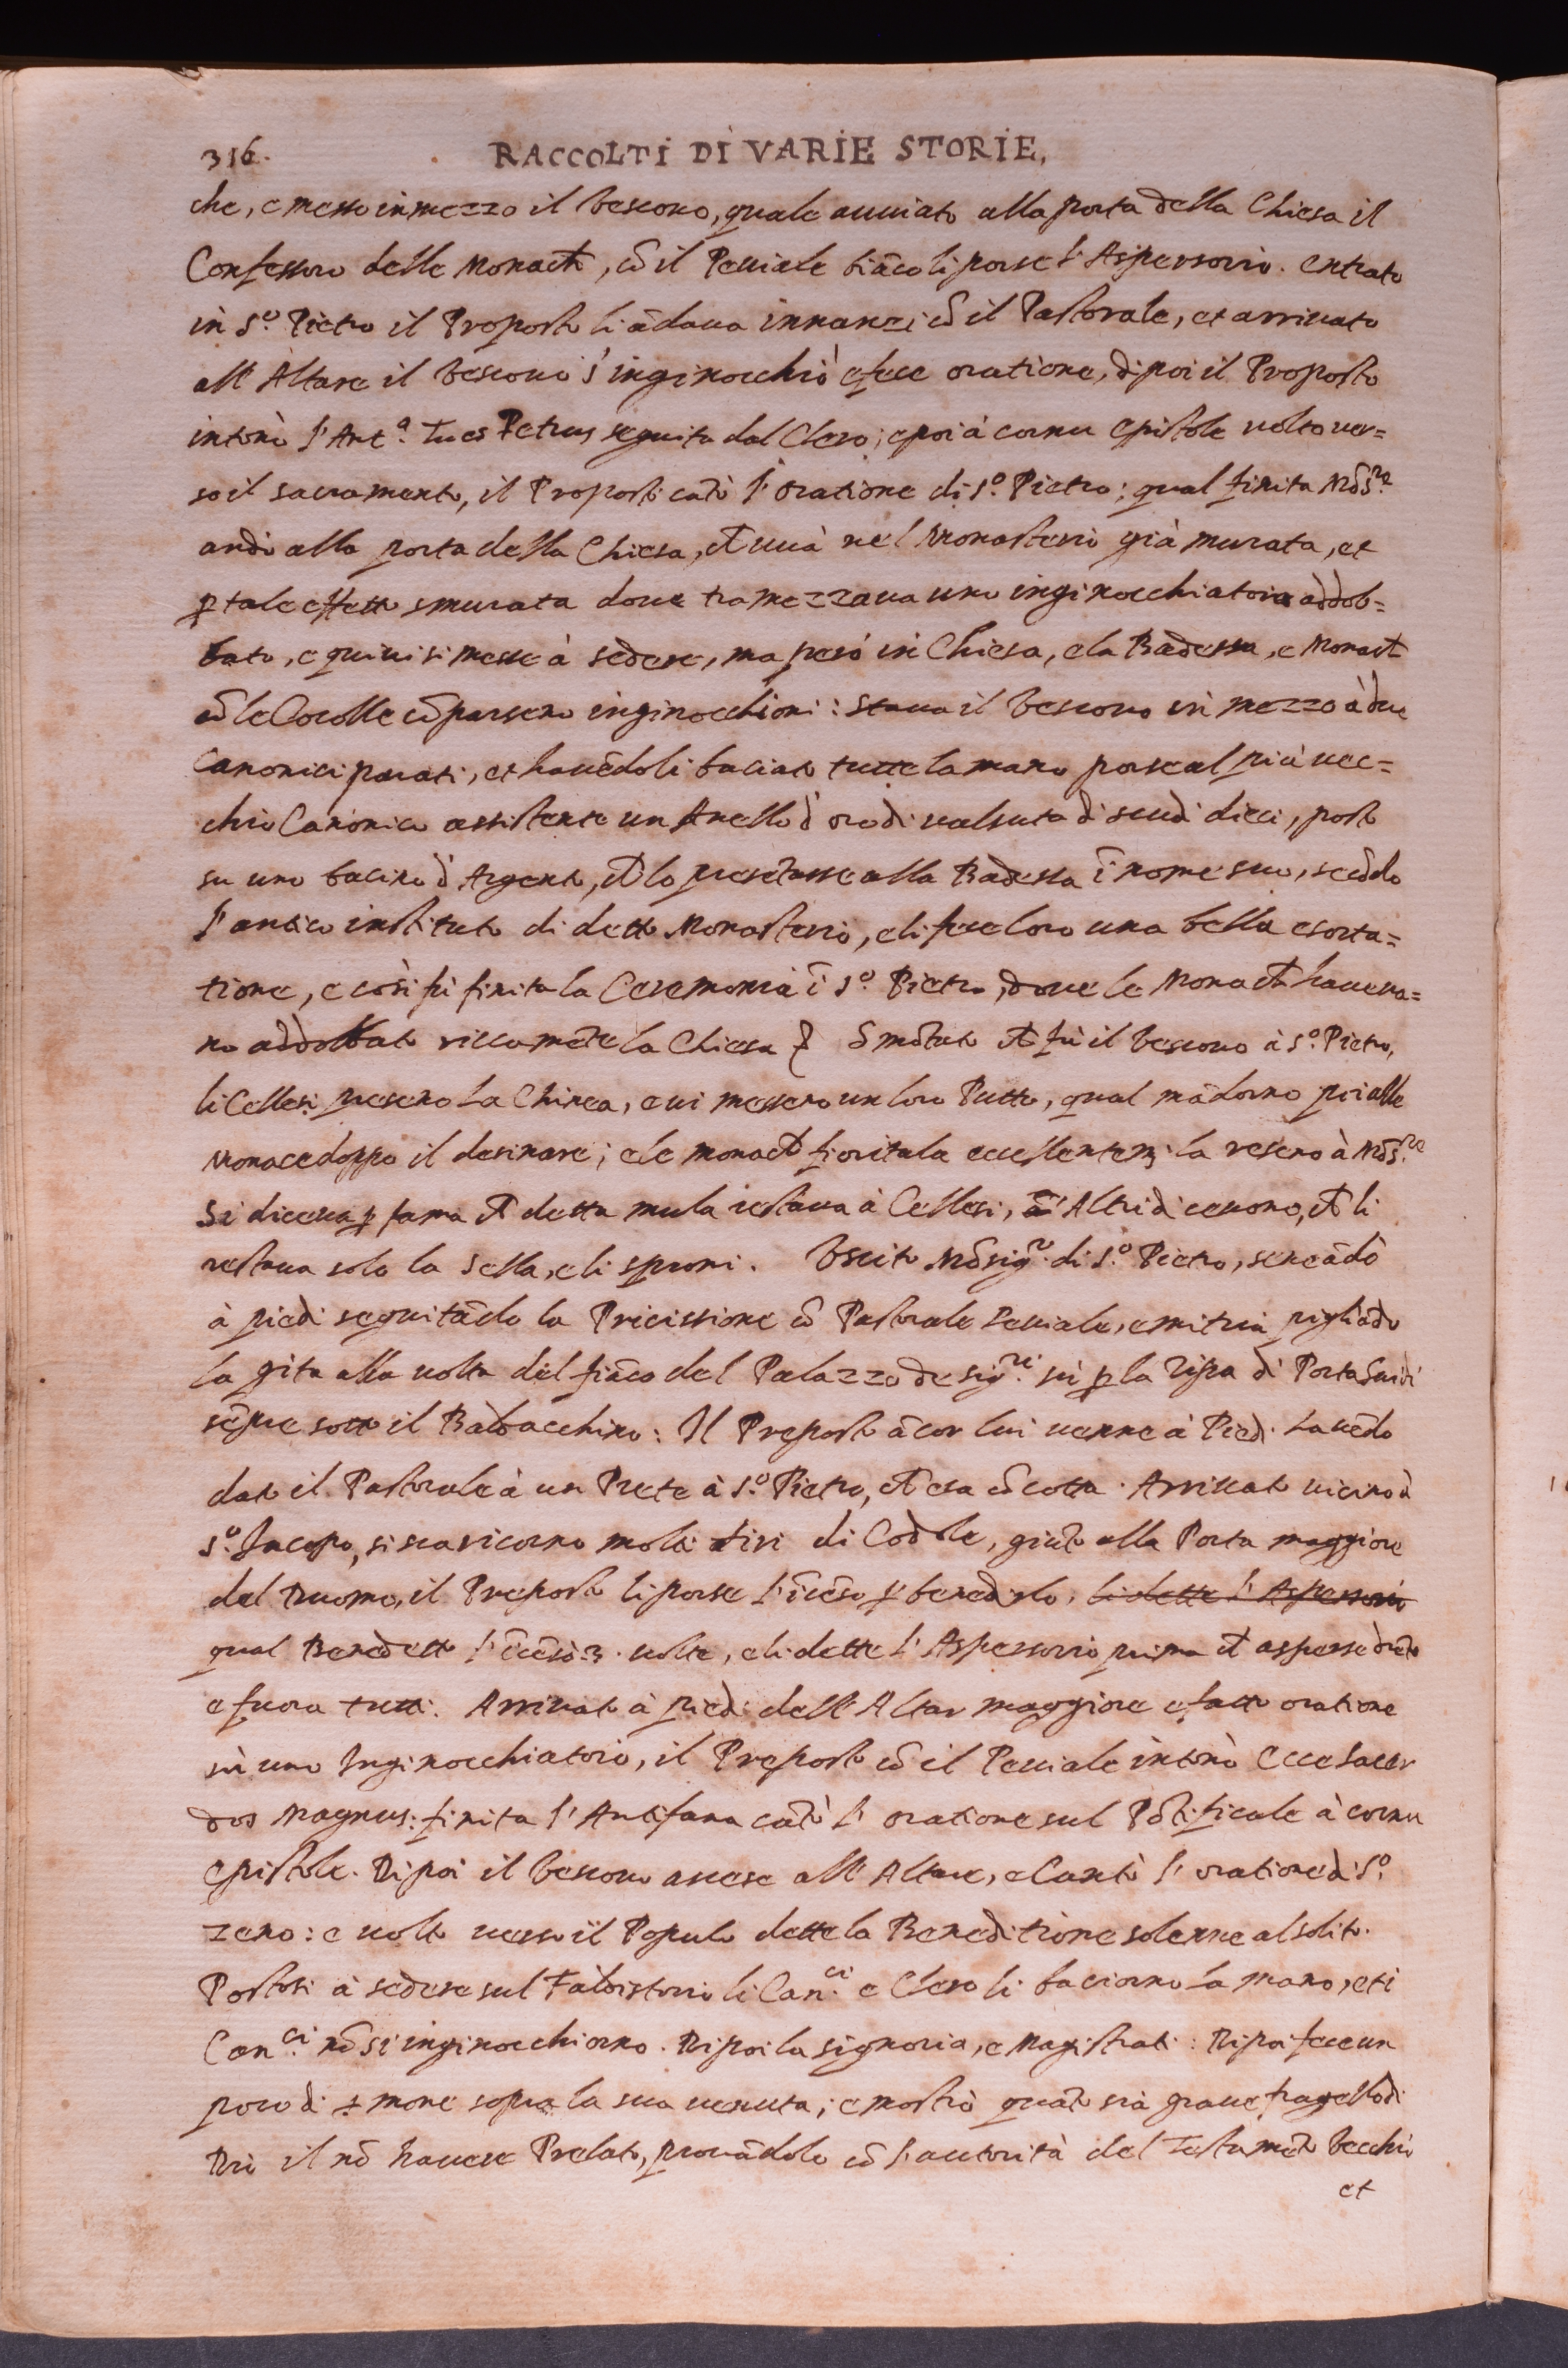 316. RACCOLTI DI VARIE STORIE.
che, e messo in mezzo il Vescovo, quale auuiato alla porta della Chiesa il
Confessoro delle Monach̃, cõ il Peuiale biãco li porse l'Aspersorio. entrato
in S.º Pietro il Proposto li ãdaua innanzi cõ il Pastorale, et arriuato
all'Altare il Vescouo s'inginocchiò e fece oratione, di poi il Proposto
intonò l'Ant.ª Tu es Petrus seguita dal Clero; e poi à cornu epistole uolto uer=
so il sacramento, il Proposto cãtò l'oratione di S.º Pietro; qual finita Mõs.re
andò alla porta della Chiesa, ch̃ uuà nel Monasterio già murata, et
p tale effetto smurata doue tramezzaua uno inginocchiatoio addob=
bato, e quiui si messe à sedere, ma però in Chiesa, e la Badessa, e Monach̃
cõ le Cocolle cõparsero inginocchioni: staua il Vescouo in mezzo à due
Canonici parati, et hauẽdoli baciato tutte la mano porse al più uec=
chio Canonico assistente un Anello d'oro di ualsuta di scudi dieci, posto
su uno bacino d'Argento, ch̃ lo presẽtasse alla Badessa ĩ nome suo, secõdo
l'antico instituto di detto Monasterio, e li fece loro una bella esorta=
tione, e così fù finita la Ceremonia ĩ S.º Pietro, doue le Monach̃ haueua=
no addobbato riccamẽte la Chiesa Smõtato ch̃ fù il Vescouo à S.º Pietro,
li Cellesi presero la Chinea, e ui messero un loro Putto, qual mãdorno poi alle
Monace doppo il desinare; e le monach̃ fioritala eccellentem̃ la resero à Mõs.re
Si diceua p fama ch̃ detta mula restaua à Cellesi, Altri diceuono, ch̃ li
restaua solo la sella, e li sproni. Vscito Mõsig.r di S.º Pietro, sene ãdò
à piedi seguitãdo la Pricissione cõ Pastorale Peuiale, e mitria pigliãdo
la gita alla uolta del fiãco del Palazzo de sig.ri sù p la Ripa di Porta Guidi
sẽpre sotto il Baldacchino: Il Preposto ãcor lui uenne à Piedi hauẽdo
dato il Pastorale à un Prete à S.º Pietro, ch̃ era cõ cotta. Arriuato uicino à
S.º Jacopo, si scaricorno molti tiri di Codole, giũto alla Porta maggiore
del Duomo, il Preposto li porse l'ĩcẽso p benedirlo, li dette l'Aspersorio
qual Benedetto l'ĩcẽsò 3. uolte, e li dette l'Aspersorio prima ch̃ asperse drẽto
e fuora tutti. Arriuato à piedi dell'Altar maggiore e fatto oratione
sù uno Inginocchiatoio, il Preposto cõ il Peuiale intonò Ecce Sacer
dos Magnus: finita l'Antifana cãtò l'oratione sul Põtificale à cornu
epistole. Di poi il Vescouo ascese all'Altare, e Cantò l'oratione di S.º
Zeno: e uolto uerso il Populo dette la Beneditione solenne al solito.
Postosi à sedere sul Faldistorio li Can.ci e Clero li baciorno la mano, et i
Can.ci nõ si inginocchiorno. Di poi la signoria, e Magistrati: Di poi fece un
poco di s̃mone sopra la sua uenuta; e mostrò quãto sia graue fragello di
Dio il nõ hauere Prelato, prouãdolo cõ l'autorità del Testamẽto Vecchio
et